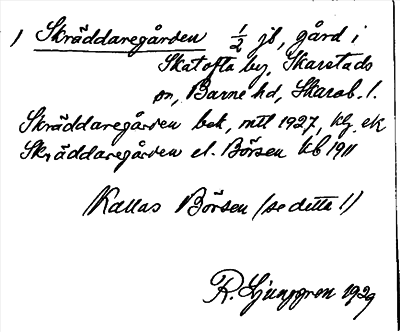 1) Skräddaregården 1/2 jb, gård i
Skatofta by, Skarstads
sn, Barne hd, Skarab. l.
Skräddaregården bok, mtl 1927, klg. ek
Skräddaregården el. Börsen kb 1911
Kallas Börsen (se detta!)
R. Ljunggren 1929